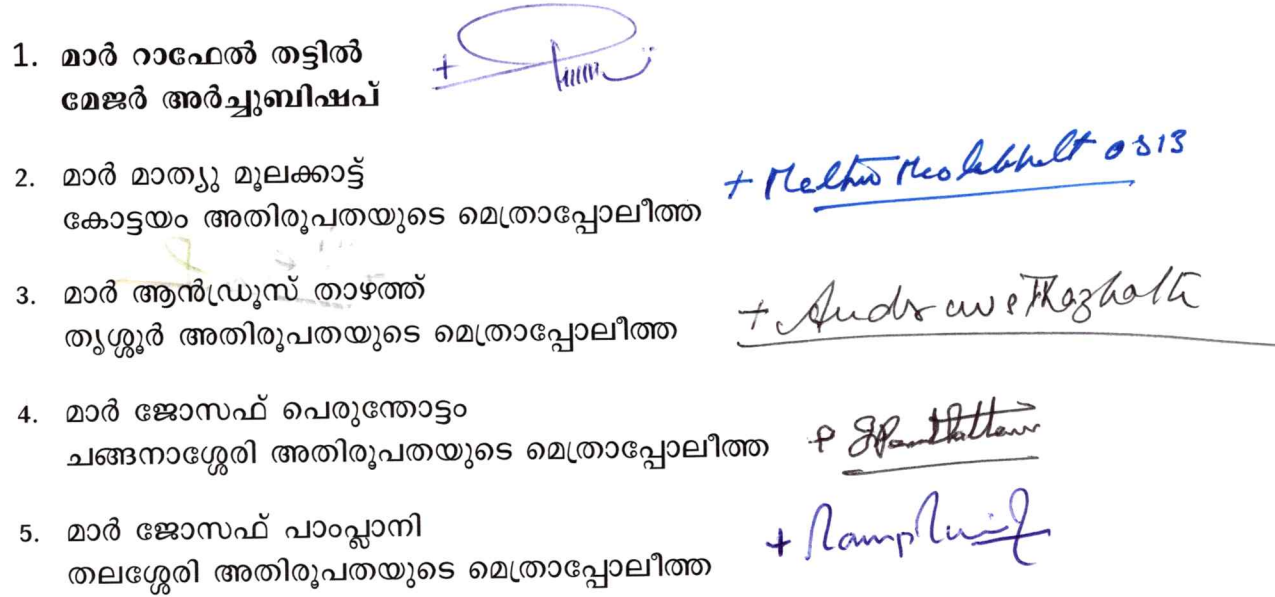 1. മാർ റാഫേൽ തട്ടിൽ
മേജർ അർച്ചുബിഷപ്
2. മാർ മാത്യു മൂലക്കാട്ട്
കോട്ടയം അതിരൂപതയുടെ മെത്രാപ്പോലീത്ത
3. മാർ ആൻഡ്രൂസ് താഴത്ത്
തൃശ്ശൂർ അതിരൂപതയുടെ മെത്രാപ്പോലീത്ത
+ Andrews Thazhath
4. മാർ ജോസഫ് പെരുന്തോട്ടം
ചങ്ങനാശ്ശേരി അതിരൂപതയുടെ മെത്രാപ്പോലീത്ത
5. മാർ ജോസഫ് പാംപ്ലാനി
തലശ്ശേരി അതിരൂപതയുടെ മെത്രാപ്പോലീത്ത